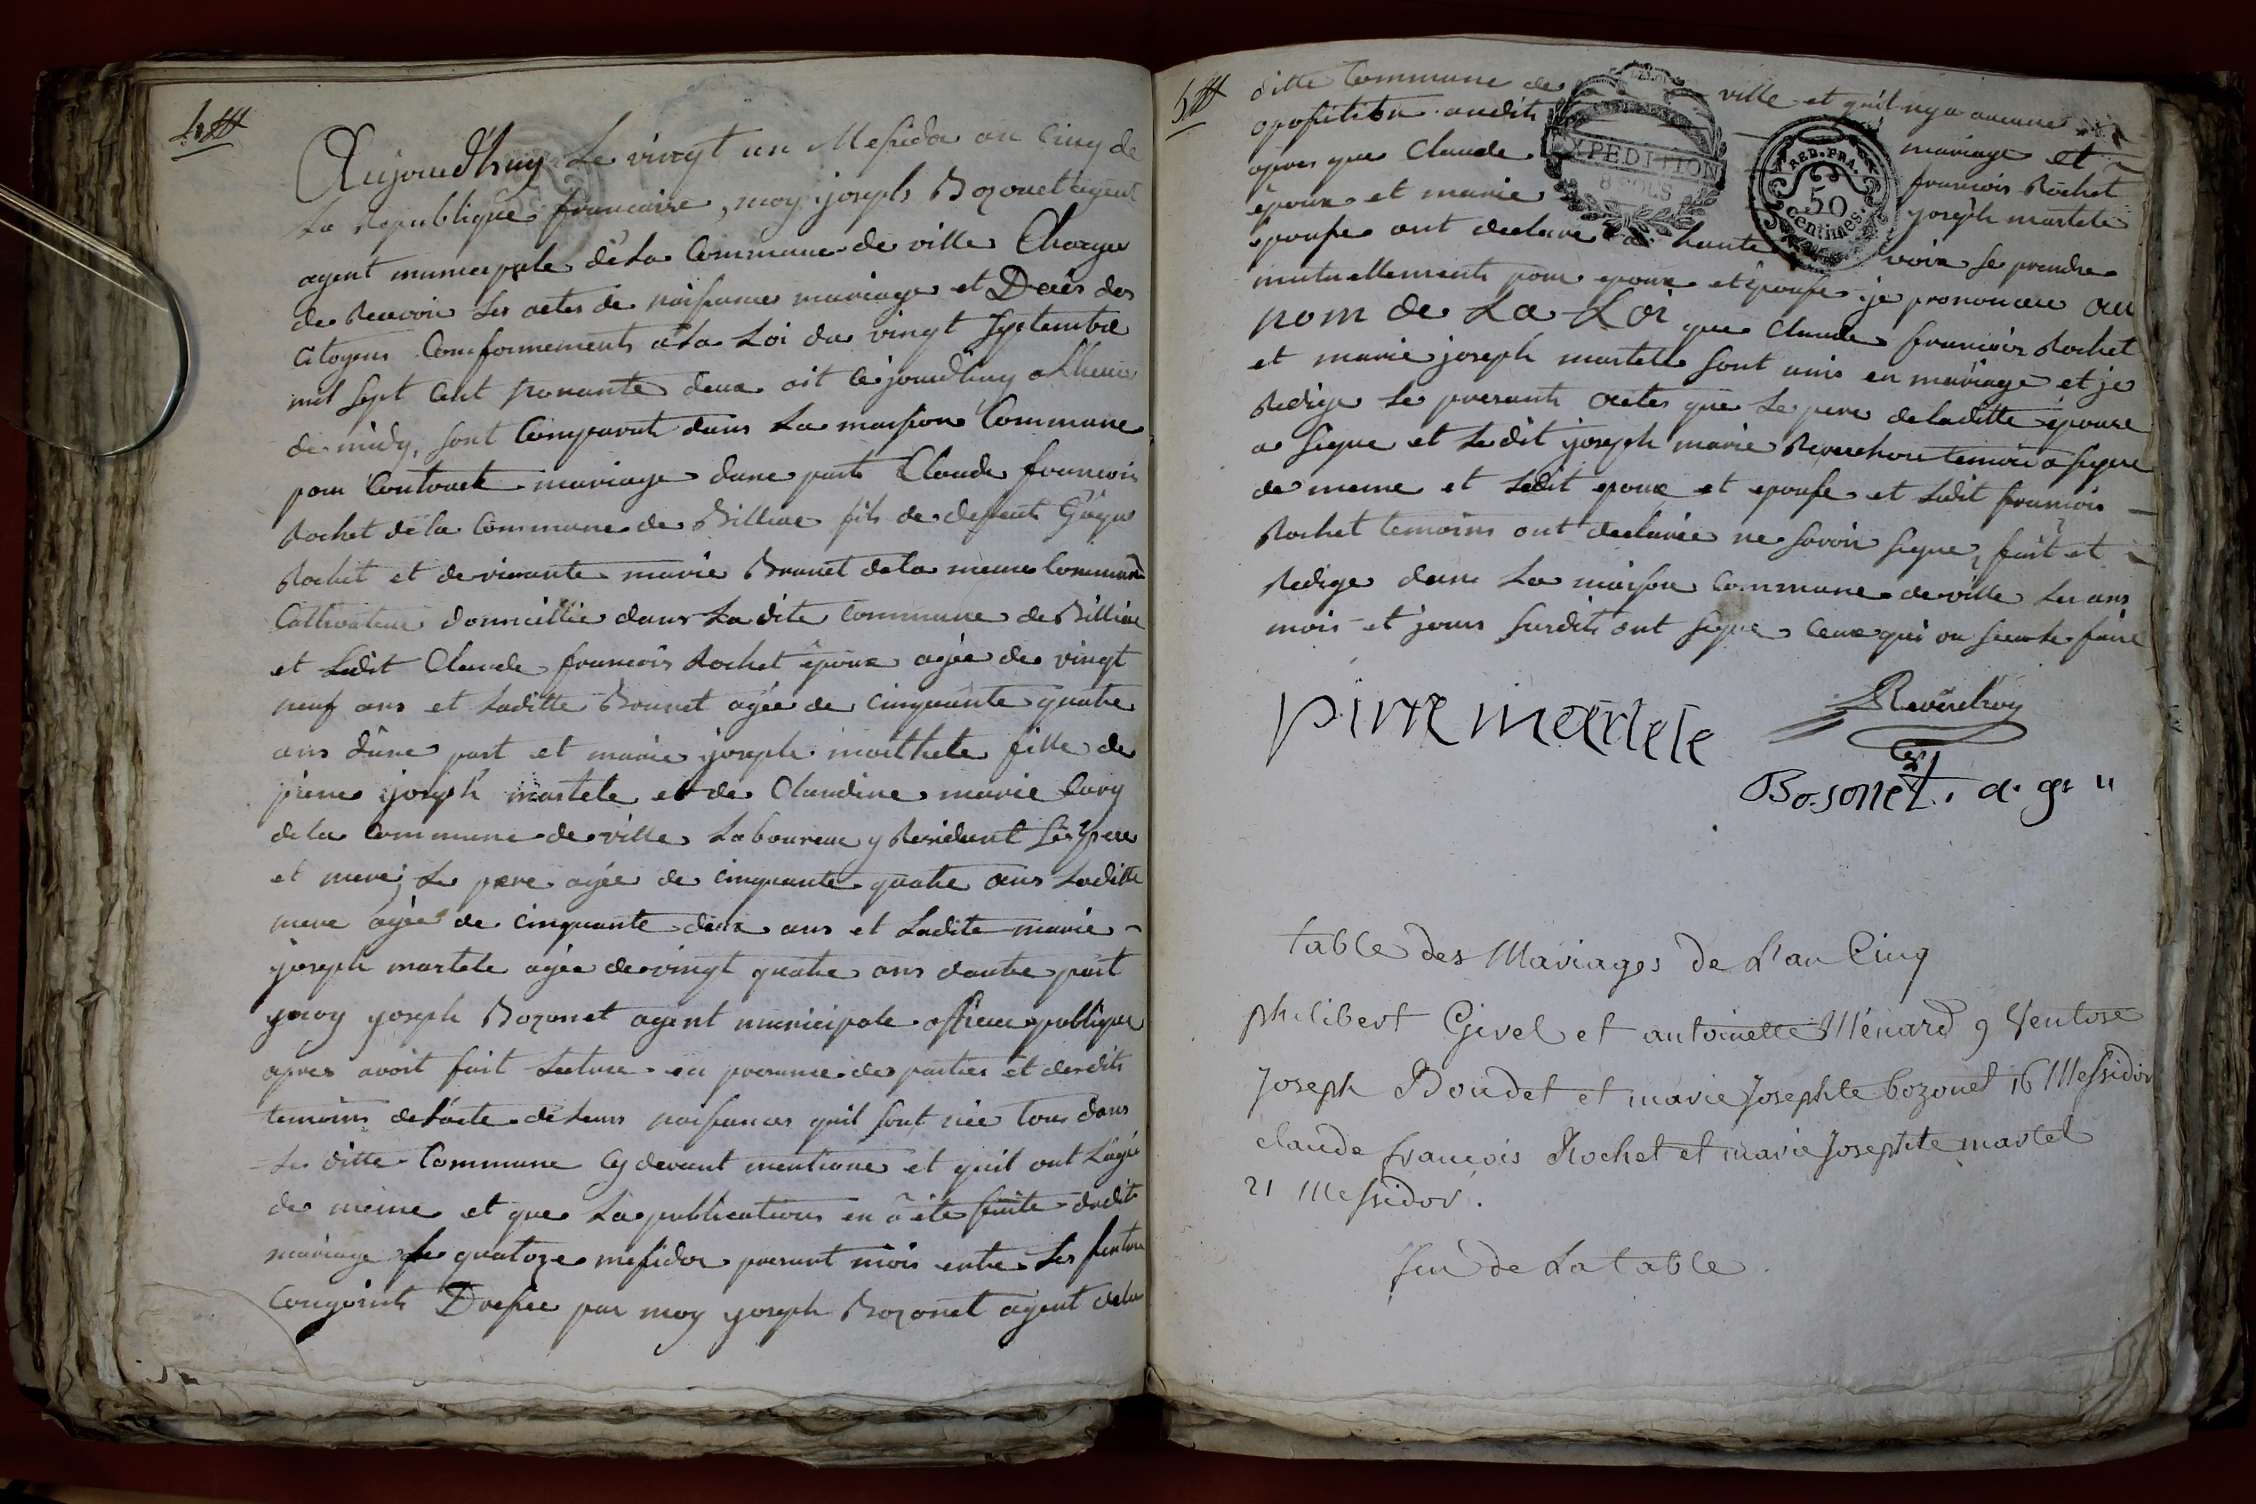 Aujourd'huy Le vingt un Mesidor an Cinq de
La Republique francaise, moy joseph Bozonet agent
agent municipale de La Commune de ville Charge
de Recevoir Les actes de naissances mariage et Decès des
Citoyens Conformements a La Loi du vingt Septembre
mil sept cent nonante deux cejourdhuy a Lheure
de midy, sont Comparut dans La maison Commune
pour Contracte mariage dune part Claude francois
Rochet de la Commune de Billiac fils de deffunt
Rochet et de vivante marie Brunet de la meme Commune
Cultivateur domicillié dans La dite Commune de Billiac
et Ledit Claude francois Rochet époux agée de vingt
neuf ans et Laditte Brunet agée de cinquante quatre
ans d'une part et marie joseph marthete fille de
pierre joseph martele et de Claudine marie
de La Commune de ville Laboureur y Residant Les pere
et mere, Le pere agée de cinquante quatre ans Laditte
mere agée de cinquante deux ans et Ladite marie
joseph martele agée de vingt quatre ans dautre part
moy joseph Bozonet agent municipale officier publique
apres avoit fait Lecture en presance des parties et desdits
temoins de L'acte de Leurs naissances quil sont née tous dans
Les ditte Commune Cy devant mentione et quil ont L'age
de meme et que La publications en a été faite dudit
mariage Le quatoze mesidor presant mois entre Les future
Congoints Dressée par moy joseph Bozonet agent de La
ditte Commune de ville et quil ny a aucune
oposition audit mariage et
apres que Claude francois Rochet
époux et marie joseph martele
épouse ont declare a haute voix se prendre
mutuellements pour epoux et épouse je prononce au
nom de La Loi que Claude francois Rochet
et marie joseph martele sont unis en mariage et je
Redige Le presants actes que Le pere de laditte épouse
a signe et Ledit joseph marie Reverchon temoin a signe
de meme et Ledit epoux et epouse et Ledit francois
Rochet temoins ont declarée ne savoir signe, fait et
Redige dans La maison Commune de ville Les ans
mois et jours susdits ont signe Ceux qui on sceu le faire
EXPEDITION
8 SOLS
REP. FRA.
50
centimes.
pirre martele
Reverchon
Bosonet. a. gt
table des Mariages de L'an Cinq
philibert Givel et antoinette Ménard 9 Ventose
Joseph Boudet et marie Josephte bozonet 16 Messidor
claude françois Rochet et marie Josephte martel
21 Messidor.
fin de La table.